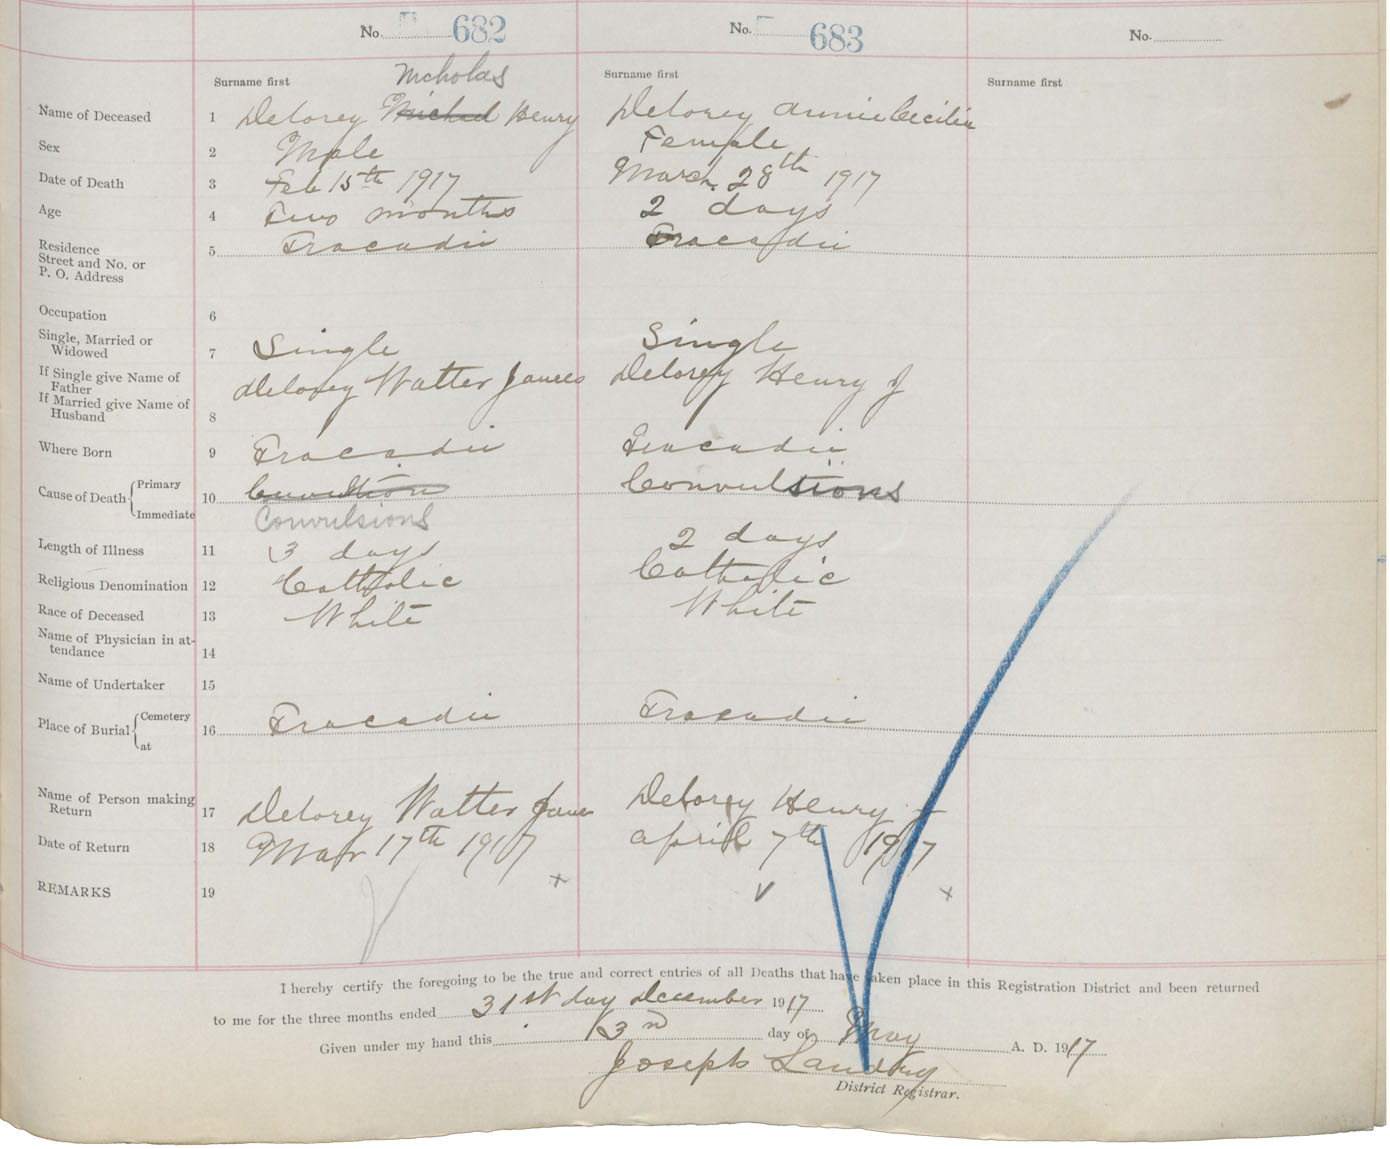 No. 682 No. 683 No.
Surname first Nicholas Surname first Surname first
Name of Deceased 1 Delorey Michael Henry Delorey Annie Cecilia
Sex 2 Male Female
Date of Death 3 Feb 15th 1917 March 28th 1917
Age 4 Two months 2 days
Residence
Street and No. or
P. O. Address 5 Tracadie Tracadie
Occupation 6
Single, Married or
Widowed 7 Single Single
If Single give Name of
Father
If Married give Name of
Husband 8 Delorey Walter James Delorey Henry J
Where Born 9 Tracadie Tracadie
Cause of Death { Primary
Immediate 10 Convulsions Convulsions
Length of Illness 11 3 days 2 days
Religious Denomination 12 Catholic Catholic
Race of Deceased 13 White White
Name of Physician in at-
tendance 14
Name of Undertaker 15
Place of Burial { Cemetery
at 16 Tracadie Tracadie
Name of Person making
Return 17 Delorey Walter James Delorey Henry J
Date of Return 18 Mar 17th 1917 April 7th 1917
REMARKS 19
I hereby certify the foregoing to be the true and correct entries of all Deaths that have taken place in this Registration District and been returned
to me for the three months ended 31st day December 1917
Given under my hand this day of May A. D. 1917
Joseph Landry
District Registrar.